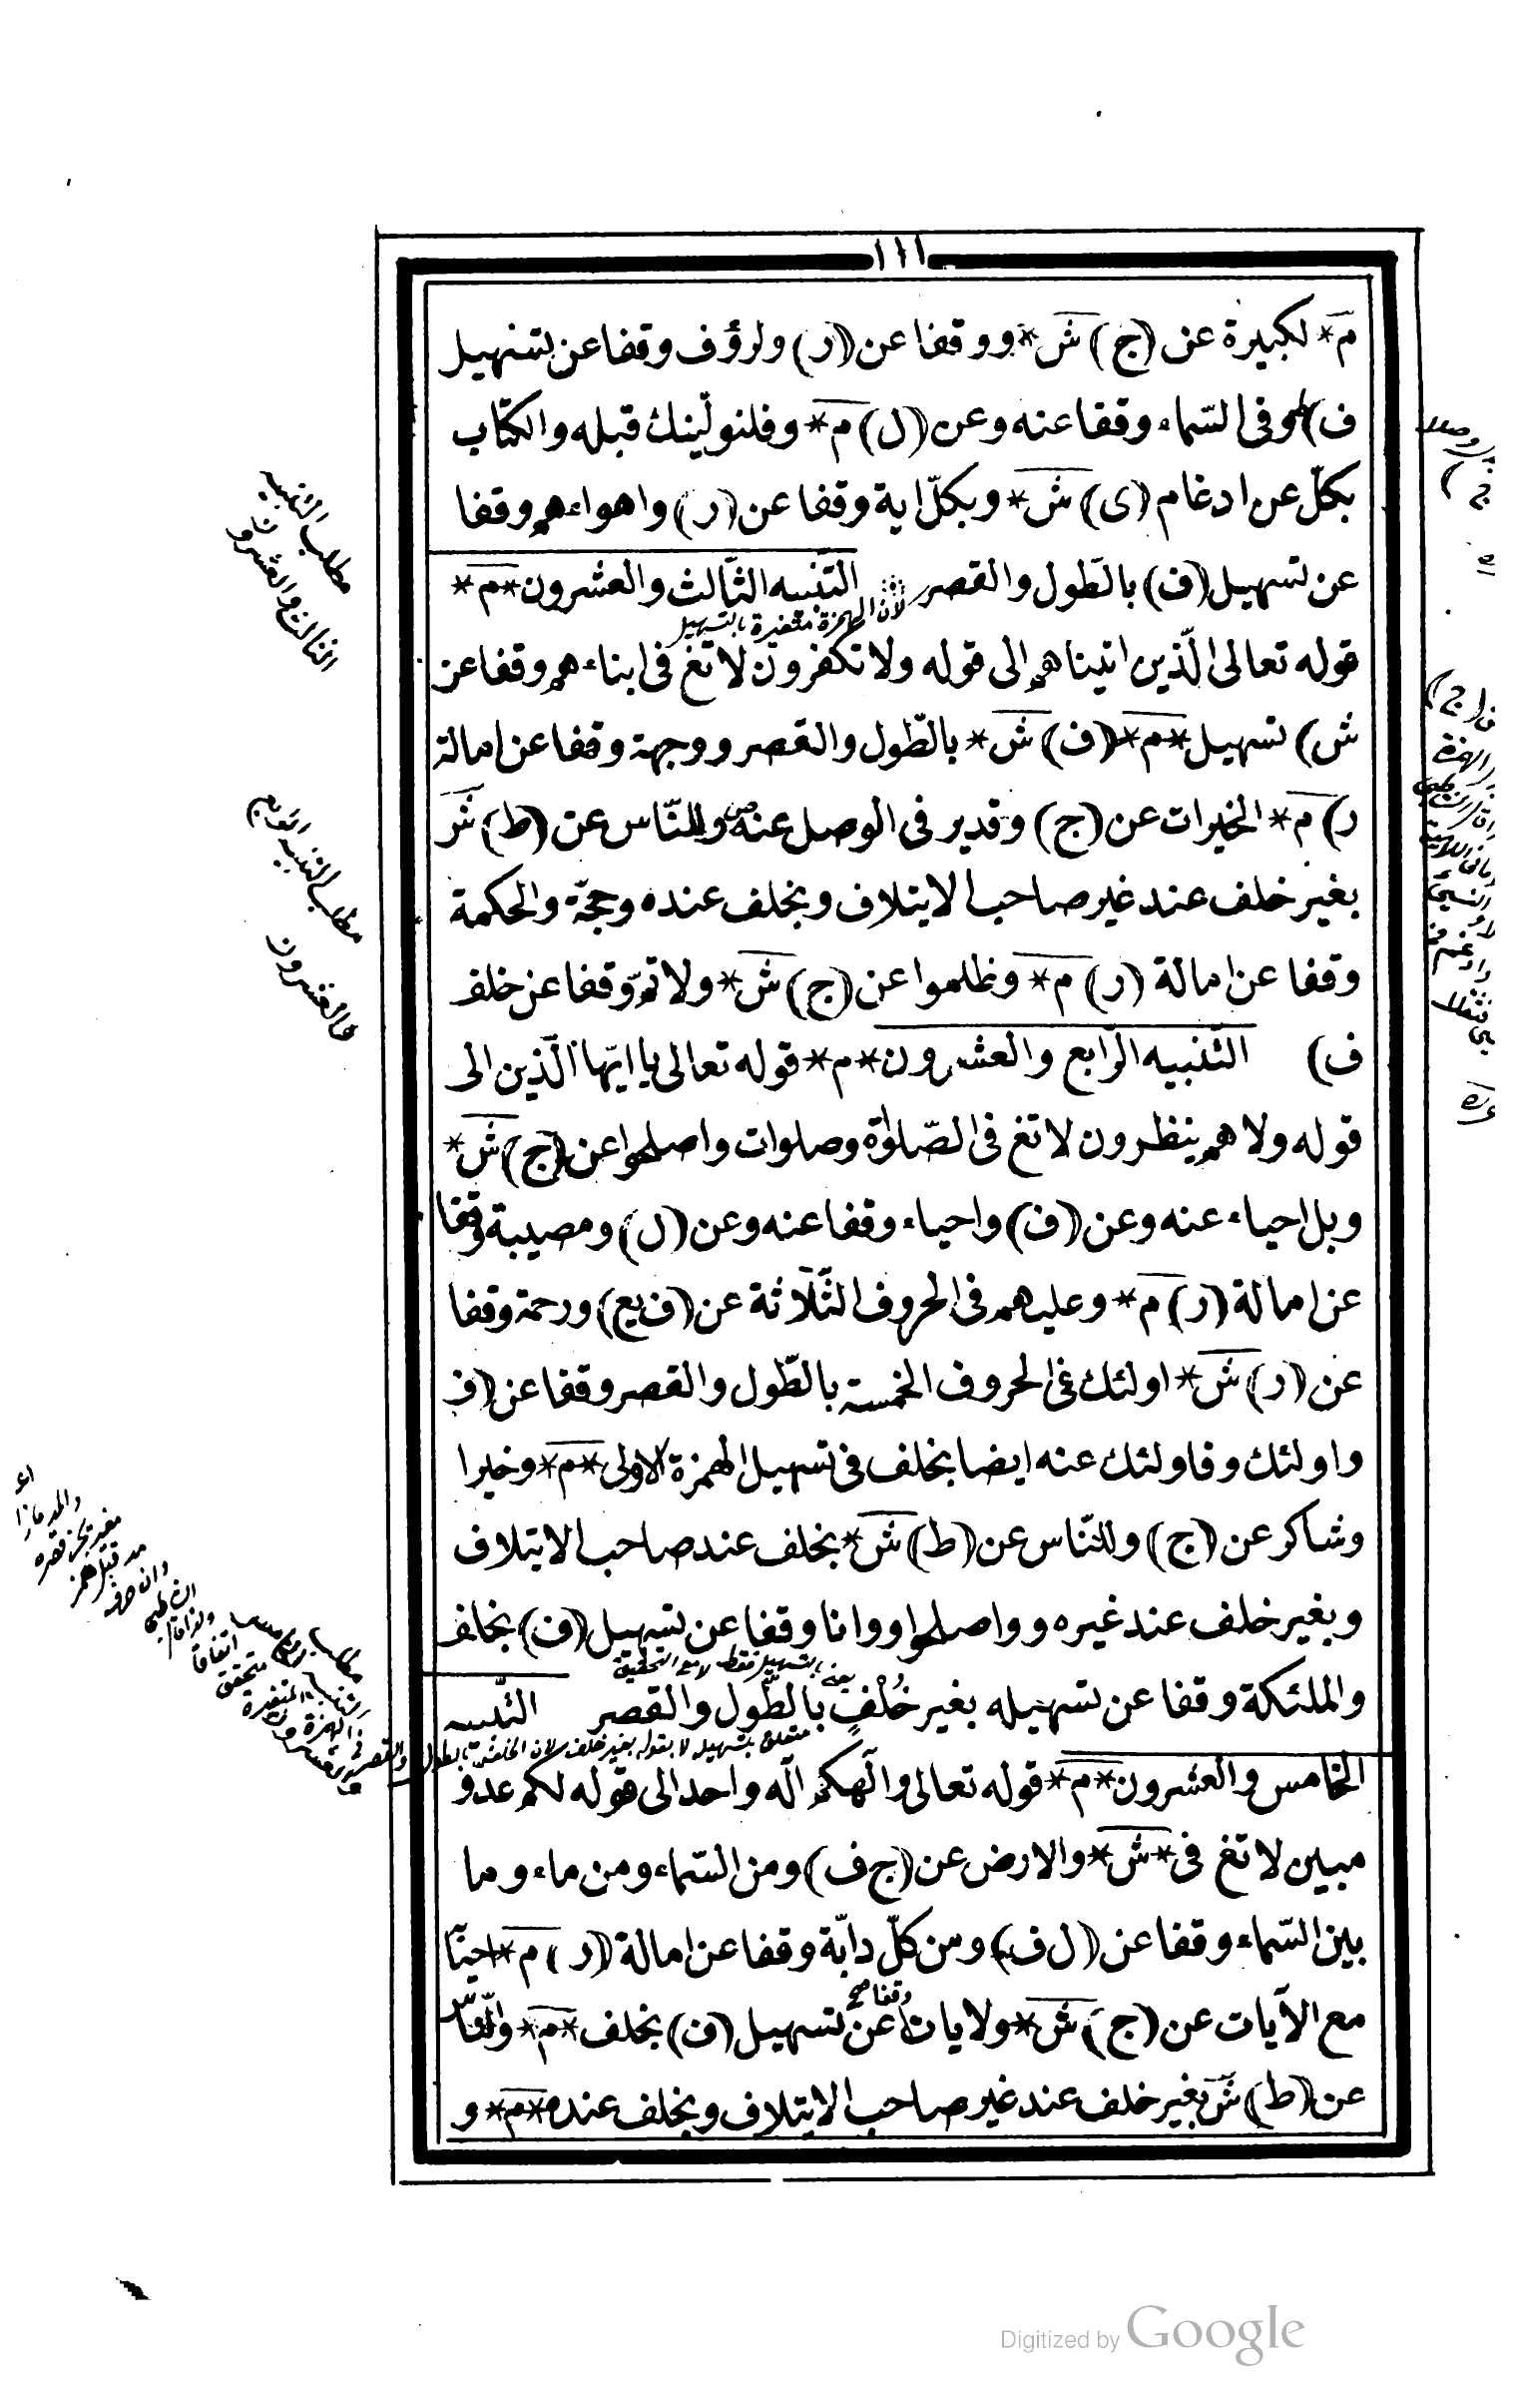 ١١١
م* لكبيرة عن (ج) ش* ووقفا عن (ر) ولرؤف وقفا عن تسهيل
ف) وفى السّماء وقفا عنه وعن (ل) م* وفلنولّينك قبله والكتاب
بكلّ عن ادغام (ى) ش* وبكلّ اية وقفا عن (ر) واهواءهم وقفا
عن تسهيل (ف) بالطّول والقصر التّنبيه الثّالث والعشرون *م*
لانّ الهمزة متغيرة بالتسهيل
قوله تعالى الّذين اتيناهم الى قوله ولا تكفرون لا تغ فى ابناءهم وقفا عن
ش) تسهيل *م* (ف) ش* بالطّول والقصر ووجهة وقفا عن امالة
ر) م* الخيرات عن (ج) وقدير فى الوصل عنه وللنّاس عن (ط) ش
بغير خلف عند غير صاحب الايتلاف وبخلف عنده وحجّة والحكمة
وقفا عن امالة (ر) م* وظلموا عن (ج) ش* ولاتمّ وقفا عن خلف
ف) التّنبيه الرّابع والعشرون *م* قوله تعالى يا ايّها الّذين الى
قوله ولا هم ينظرون لا تغ فى الصّلوٰة وصلوات واصلحوا عن (ج) ش*
وبل احياء عنه وعن (ف) واحياء وقفا عنه وعن (ل) ومصيبة وقفا
عن امالة (ر) م* وعليهم فى الحروف الثّلاثة عن (ف يع) ورحمة وقفا
عن (ر) ش* اولئك فى الحروف الخمسة بالطّول والقصر وقفا عن (ف
واولئك وفاولئك عنه ايضا بخلف فى تسهيل الهمزة الاولى *م* وخيرا
وشاكر عن (ج) وللنّاس عن (ط) ش* بخلف عند صاحب الايتلاف
وبغير خلف عند غيره وواصلحوا ووانا وقفا عن تسهيل (ف) بخلف
يعنى بالتسهيل فقط لا مع التحقيق
والملئكة وقفا عن تسهيله بغير خُلْفٍ بالطّول والقصر التّنبيه
متعلق بتسهيل لا بقوله بغير خلف لان
الخامس والعشرون *م* قوله تعالى والٰهكم الٰه واحد الى قوله لكم عدو
مبين لا تغ فى *ش* والارض عن (ج ف) ومن السّماء ومن ماء وما
بين السّماء وقفا عن (ل ف) ومن كلّ دابّة وقفا عن امالة (ر) م*
وقفا صح
مع الآيات عن (ج) ش* ولايات عن تسهيل (ف) بخلف *م*
عن (ط) ش بغير خلف عند غير صاحب الايتلاف وبخلف عنده *م* و
مطلب التنبيه
الثالث والعشرون
مطلب التنبيه الرابع
والعشرون
Digitized by Google